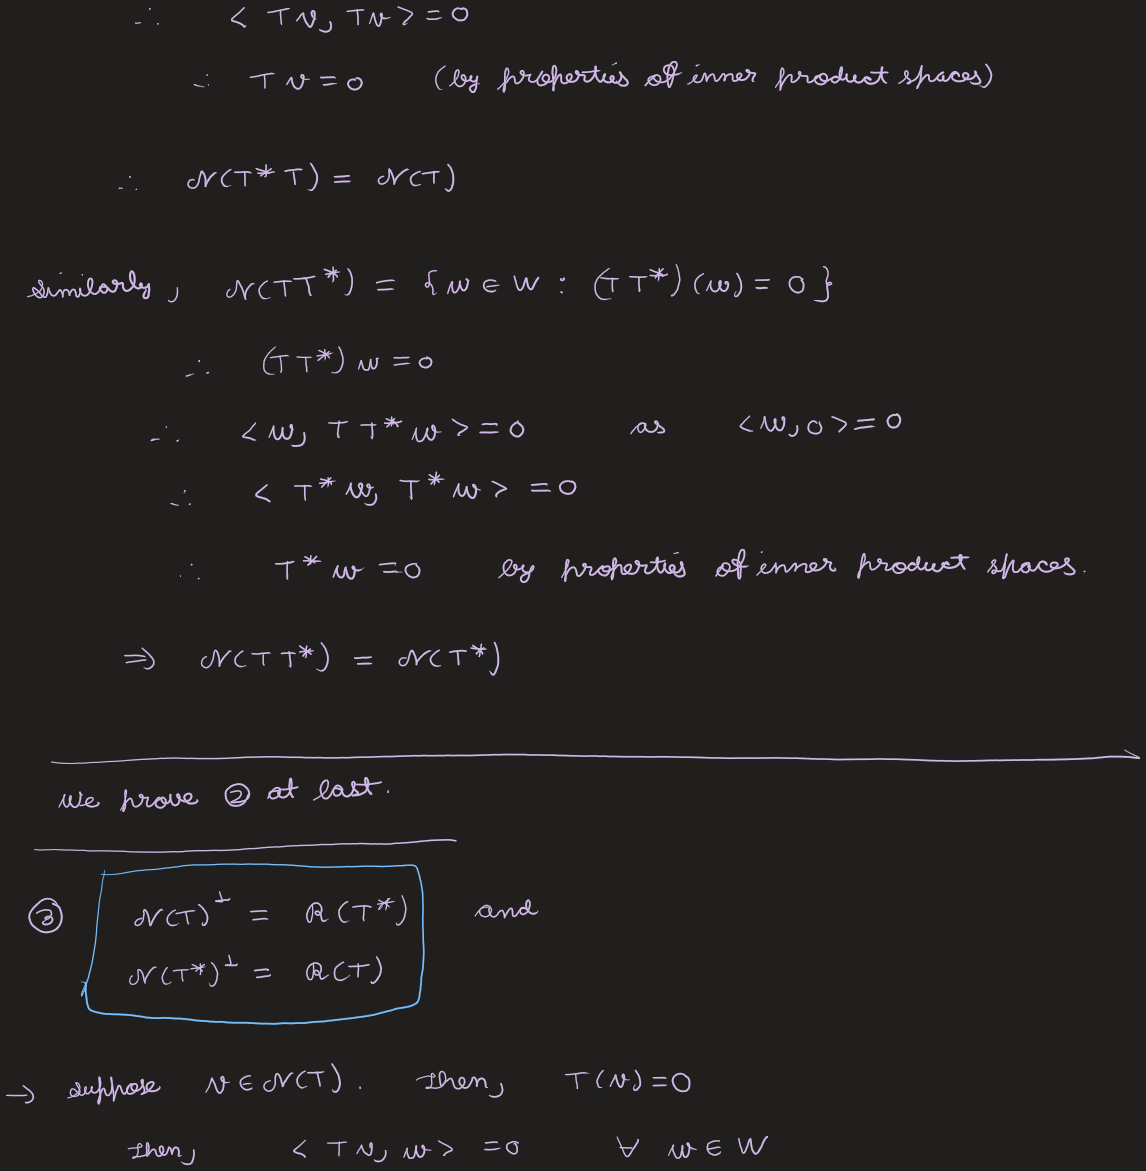 ∴ < Tv, Tv > = 0
∴ Tv = 0 (by properties of inner product spaces)
∴ N(T* T) = N(T)
similarly, N(TT*) = { w ∈ W : (TT*)(w) = 0 }
∴ (TT*) w = 0
∴ < w, TT* w > = 0 as < w, 0 > = 0
∴ < T* w, T* w > = 0
∴ T* w = 0 by properties of inner product spaces.
⇒ N(TT*) = N(T*)
We prove ② at last.
③ N(T)^⊥ = R(T*) and
N(T*)^⊥ = R(T)
→ suppose v ∈ N(T). Then, T(v) = 0
Then, < Tv, w > = 0 ∀ w ∈ W